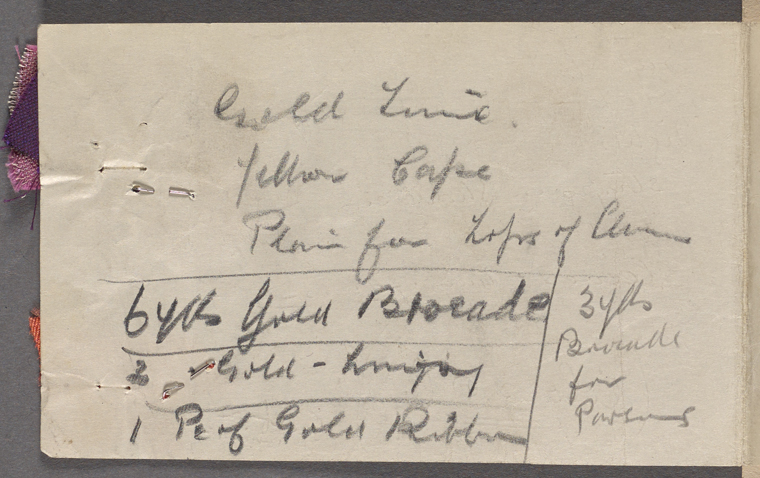 Gold
Yellow Cape
Plain for Tops of
6 yds Gold Brocade
2 Gold - Lining
1 Pc of Gold Ribbon
3 yds
Brocade
for